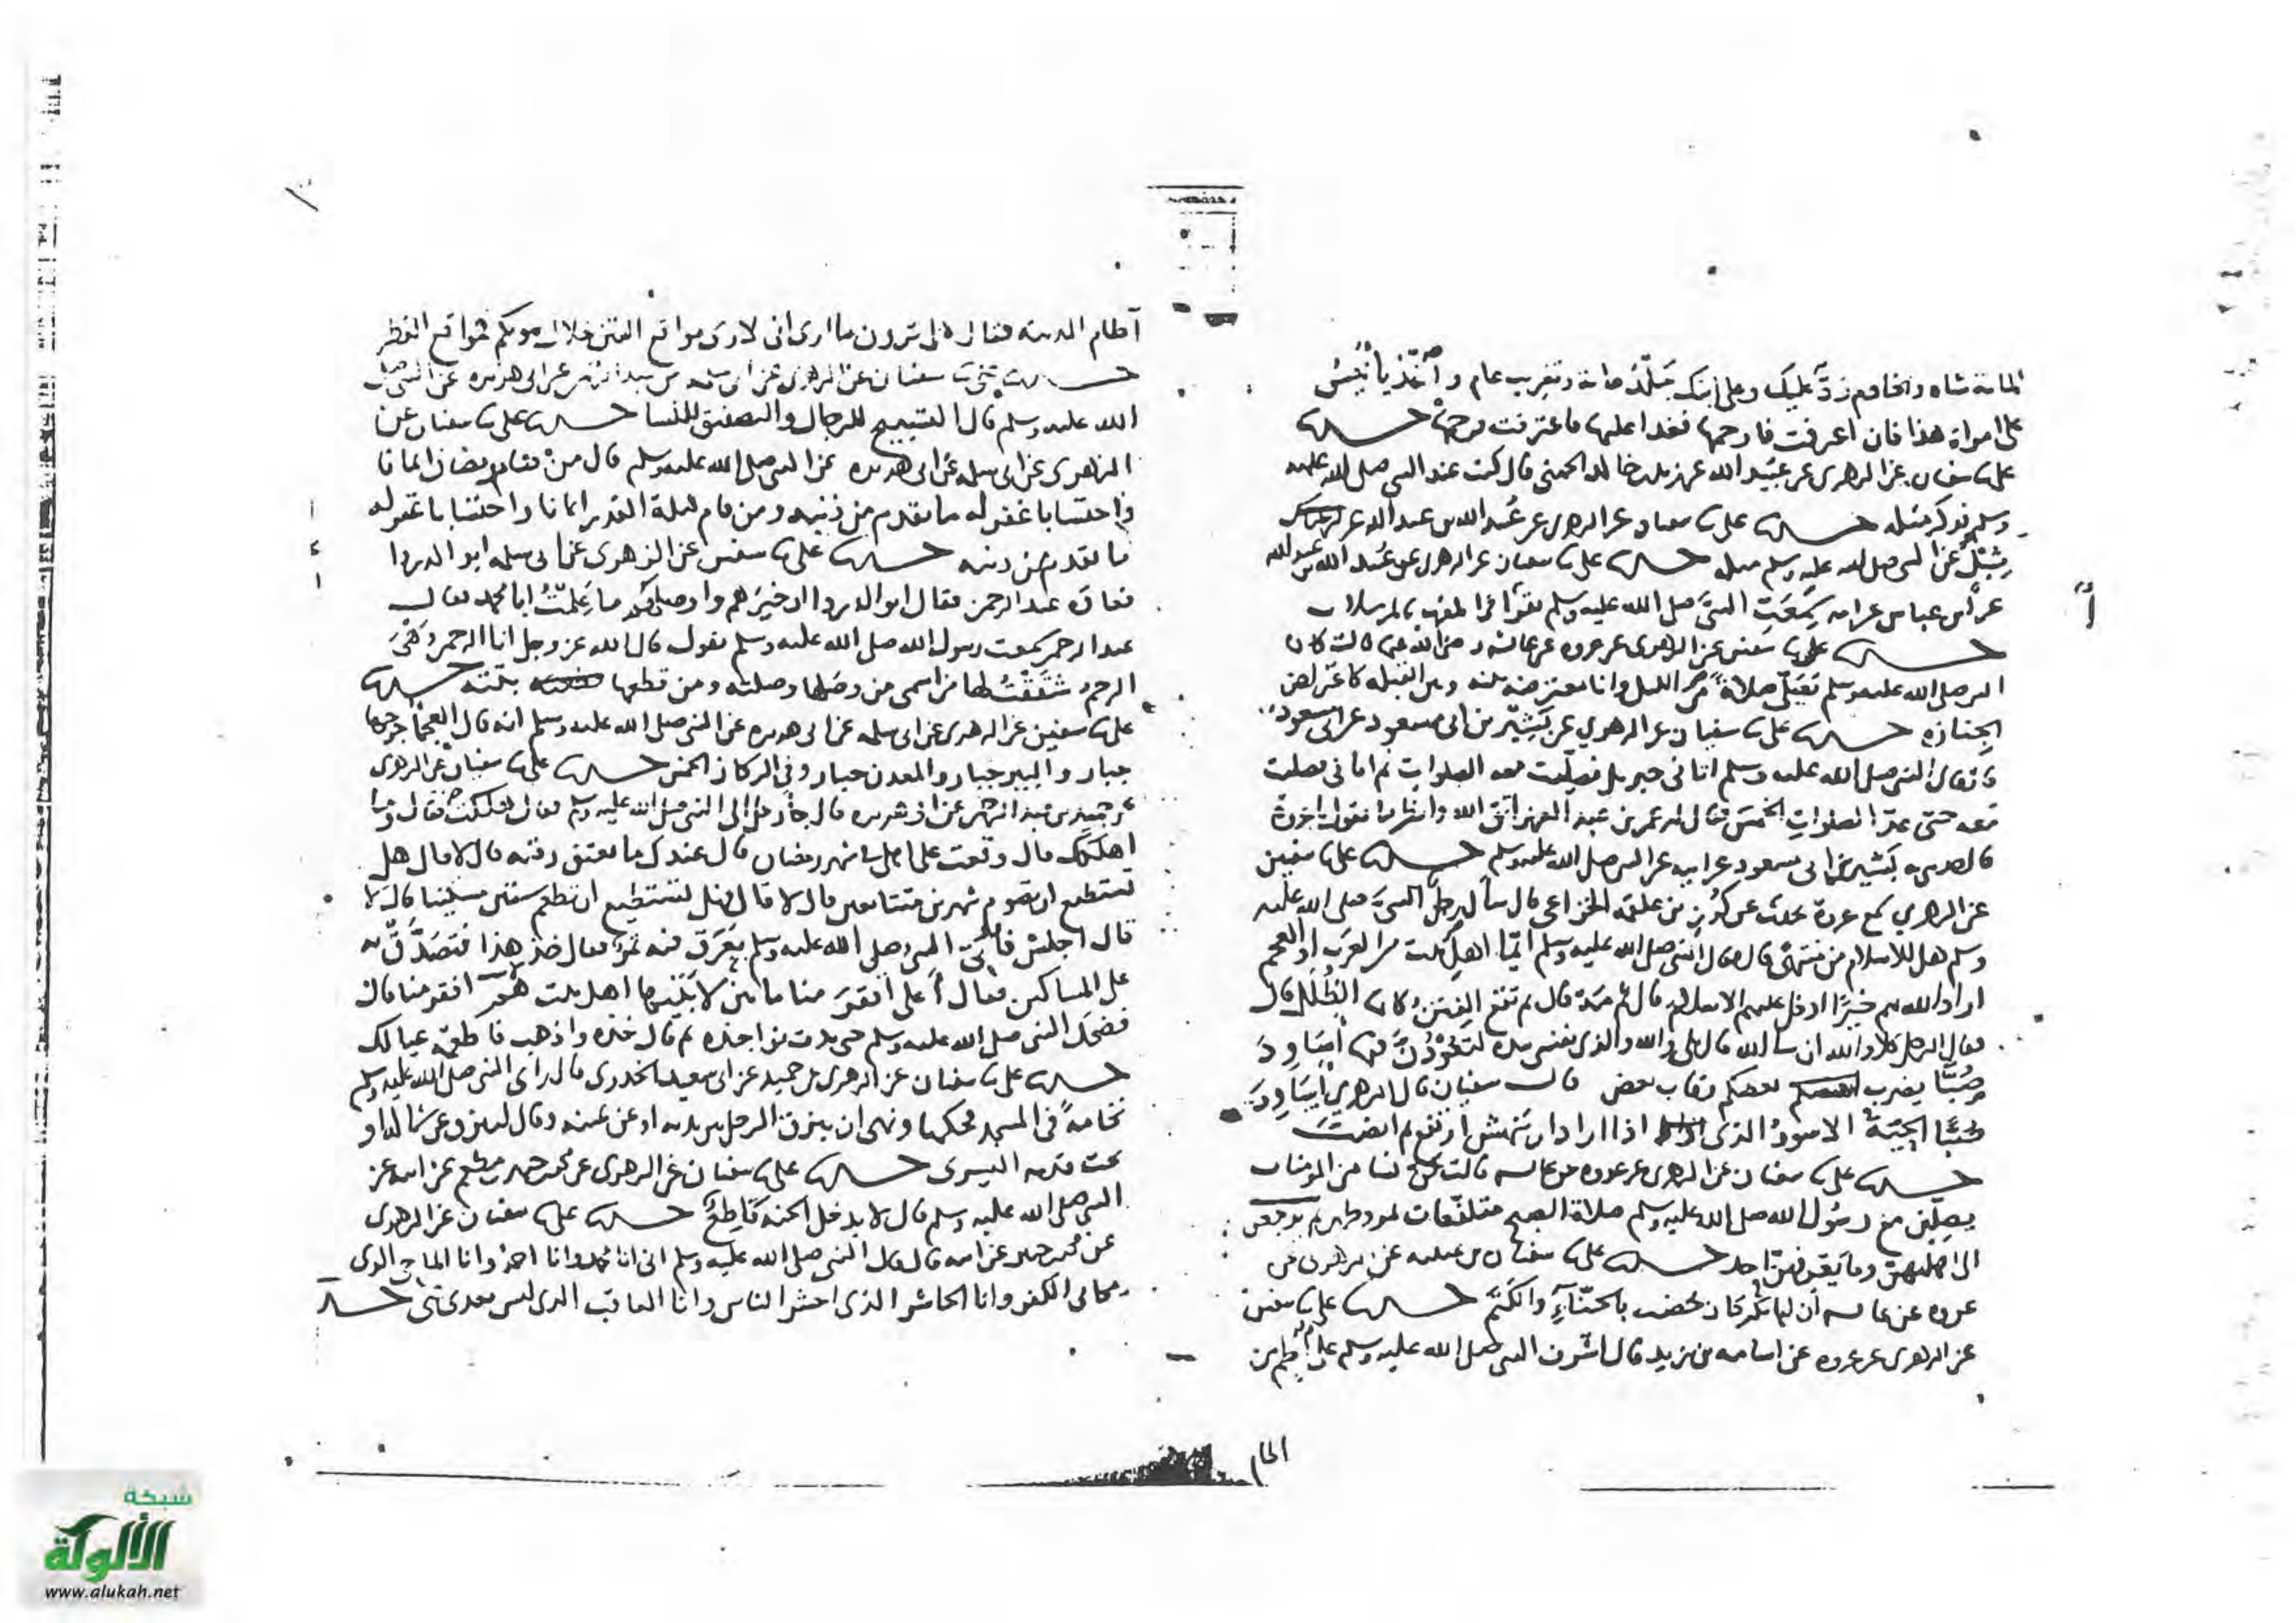 المائة شاه والخادم رد عليك وعلى ابنك جلد مائة وتغريب عام واغد يا انيس
على امراة هذا فان اعترفت فارجمها فغدا عليها فاعترفت فرجمها حدثنا
على نا سفيان عن الزهرى عن عبيد الله عن زيد بن خالد الجهنى قال كنت عند النبى صلى الله عليه
وسلم فذكر مثله حدثنا على نا سفيان عن الزهرى عن عبيد الله بن عبد الله عن
شبل عن النبى صلى الله عليه وسلم مثله حدثنا على نا سفيان عن الزهرى عن عبيد الله بن عبد الله
عن ابن عباس عن امه سمعت النبى صلى الله عليه وسلم يقرا فى المغرب بالمرسلات
حدثنا على نا سفين عن الزهرى عن عروه عن عائشه رضى الله عنها قالت كان
النبى صلى الله عليه وسلم يصلى صلاته من الليل وانا معترضه بينه وبين القبله كاعتراض
الجنازه حدثنا على نا سفيان عن الزهري عن بشير بن ابى مسعود عن ابى مسعود
قال النبى صلى الله عليه وسلم اتانى جبريل فصليت معه الصلوات ثم اتانى فصليت
معه حتى عد الصلوات الخمس فقال له عمر بن عبد العزيز اتق الله وانظر ما تقول يا عروة
قال حدثنيه بشير بن ابى مسعود عن ابيه عن النبى صلى الله عليه وسلم حدثنا على نا سفين
عن الزهري سمع عروة يحدث عن كرز بن علقمه الخزاعى قال سأل رجل النبى صلى الله عليه
وسلم هل للاسلام من منتهى قال فقال النبى صلى الله عليه وسلم ايما اهل بيت من العرب او العجم
اراد الله بهم خيرا ادخل عليهم الاسلام قال ثم مه قال ثم تقع الفتن كان الظلل قال
فقال الرجل كلا والله ان شا الله قال بلى والله والذى نفسى بيده لتعودن فيها اساود
صبا يضرب بعضكم رقاب بعض قال سفيان قال الزهري اساود
صبا الحية الاسود الذى اذا اراد ان تنهش ارتفع ثم انصبت
حدثنا على نا سفيان عن الزهرى عن عروه عن عائشه قالت كن نسا من المومنات
يصلين مع رسول الله صلى الله عليه وسلم صلاة الصبح متلفعات بمروطهن ثم يرجعن
الى اهليهن وما يعرفهن احد حدثنا على نا سفيان بن عيينه عن الزهرى عن
عروه عن عائشه ان ابا بكر كان يخضب بالحناء والكتم حدثنا على نا سفين
عن الزهرى عن عروه عن اسامه بن زيد قال اشرف النبى صلى الله عليه وسلم على اطم من
اطام
آطام المدينه فقال هل ترون ما ارى انى لارى مواقع الفتن خلال بيوتكم كمواقع القطر
حدثنا على نا سفيان عن الزهرى عن ابى سلمه بن عبد الرحمن عن ابى هريره عن النبى صلى
الله عليه وسلم قال التسبيح للرجال والتصفيق للنسا حدثنا على نا سفيان عن
الزهرى عن ابى سلمه عن ابى هريره عن النبى صلى الله عليه وسلم قال من صام رمضان ايمانا
واحتسابا غفر له ما تقدم من ذنبه ومن قام ليلة القدر ايمانا واحتسابا غفر له
ما تقدم من ذنبه حدثنا على نا سفين عن الزهرى عن ابى سلمه ابو الردا
فعاده عبد الرحمن فقال ابو الردا خيرهم واوصلهم ما علمت ابا محمد فقال
عبد الرحمن سمعت رسول الله صلى الله عليه وسلم يقول قال الله عز وجل انا الرحمن وهى
الرحم شققت لها من اسمى من وصلها وصلته ومن قطعها بتته حدثنا
على نا سفين عن الزهرى عن ابى سلمه عن ابى هريره عن النبى صلى الله عليه وسلم انه قال العجما جرحها
جبار والبير جبار والمعدن جبار وفى الركاز الخمس حدثنا على نا سفيان عن الزهرى
عن حميد بن عبد الرحمن عن ابى هريره قال جا رجل الى النبى صلى الله عليه وسلم فقال هلكت فقال وما
اهلكك قال وقعت على اهلى فى شهر رمضان قال عندك ما تعتق رقبه قال لا قال هل
تستطيع ان تصوم شهرين متتابعين قال لا قال فهل تستطيع ان تطعم ستين مسكينا قال لا
قال اجلس فاتى النبى صلى الله عليه وسلم بعرق فيه تمر فقال خذ هذا فتصدق به
على المساكين فقال أعلى افقر منا ما بين لابتيها اهل بيت افقر منا قال
فضحك النبى صلى الله عليه وسلم حتى بدت نواجذه ثم قال خذه واذهب فاطعمه عيالك
حدثنا على نا سفيان عن الزهرى عن حميد عن ابى سعيد الخدرى قال راى النبى صلى الله عليه وسلم
نخامة فى المسجد فحكها ونهى ان يبزق الرجل بين يديه او عن يمينه وقال ليبزق عن شماله او
تحت قدمه اليسرى حدثنا على نا سفيان عن الزهرى عن محمد بن جبير بن مطعم عن ابيه عن
النبى صلى الله عليه وسلم قال لا يدخل الجنه قاطع حدثنا على نا سفيان عن الزهرى
عن محمد بن جبير عن ابيه قال قال النبى صلى الله عليه وسلم انى انا محمد وانا احمد وانا الماحى الذى
يمحا بى الكفر وانا الحاشر الذى احشر الناس وانا العاقب الذى ليس بعدى نبى حدثنا
شبكة
الألوكة
www.alukah.net